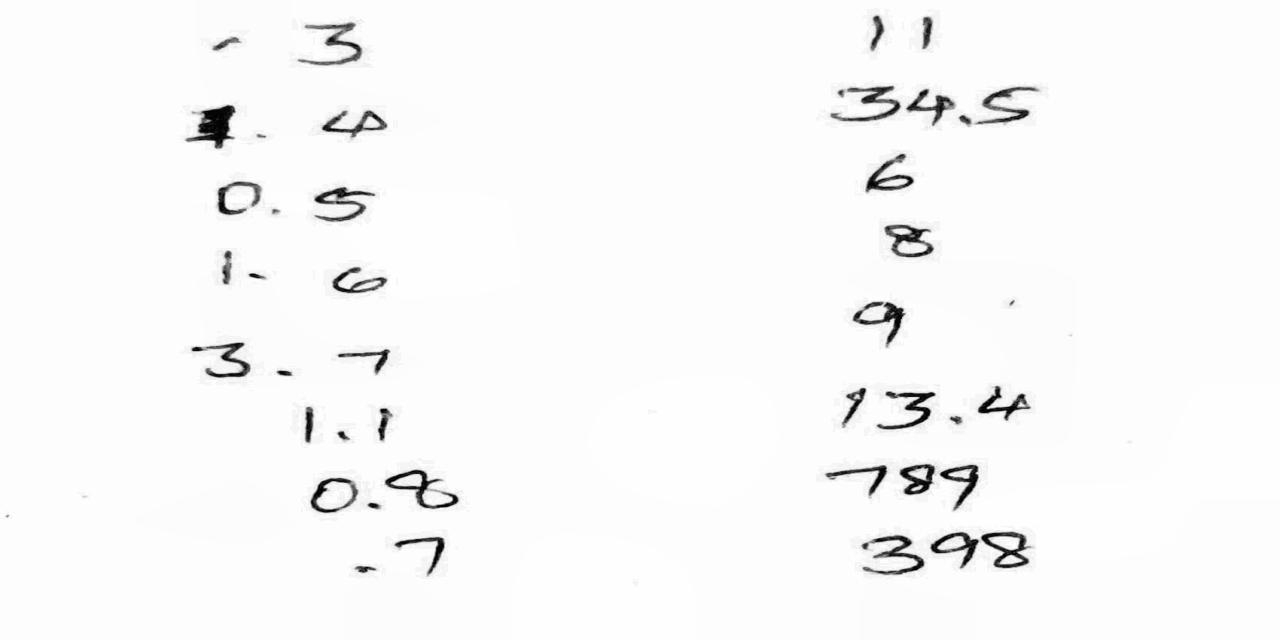 - 3 11
1. 4 34.5
0.5 6
1. 6 8
3.7 9
1.1 13.4
0.8 789
.7 398